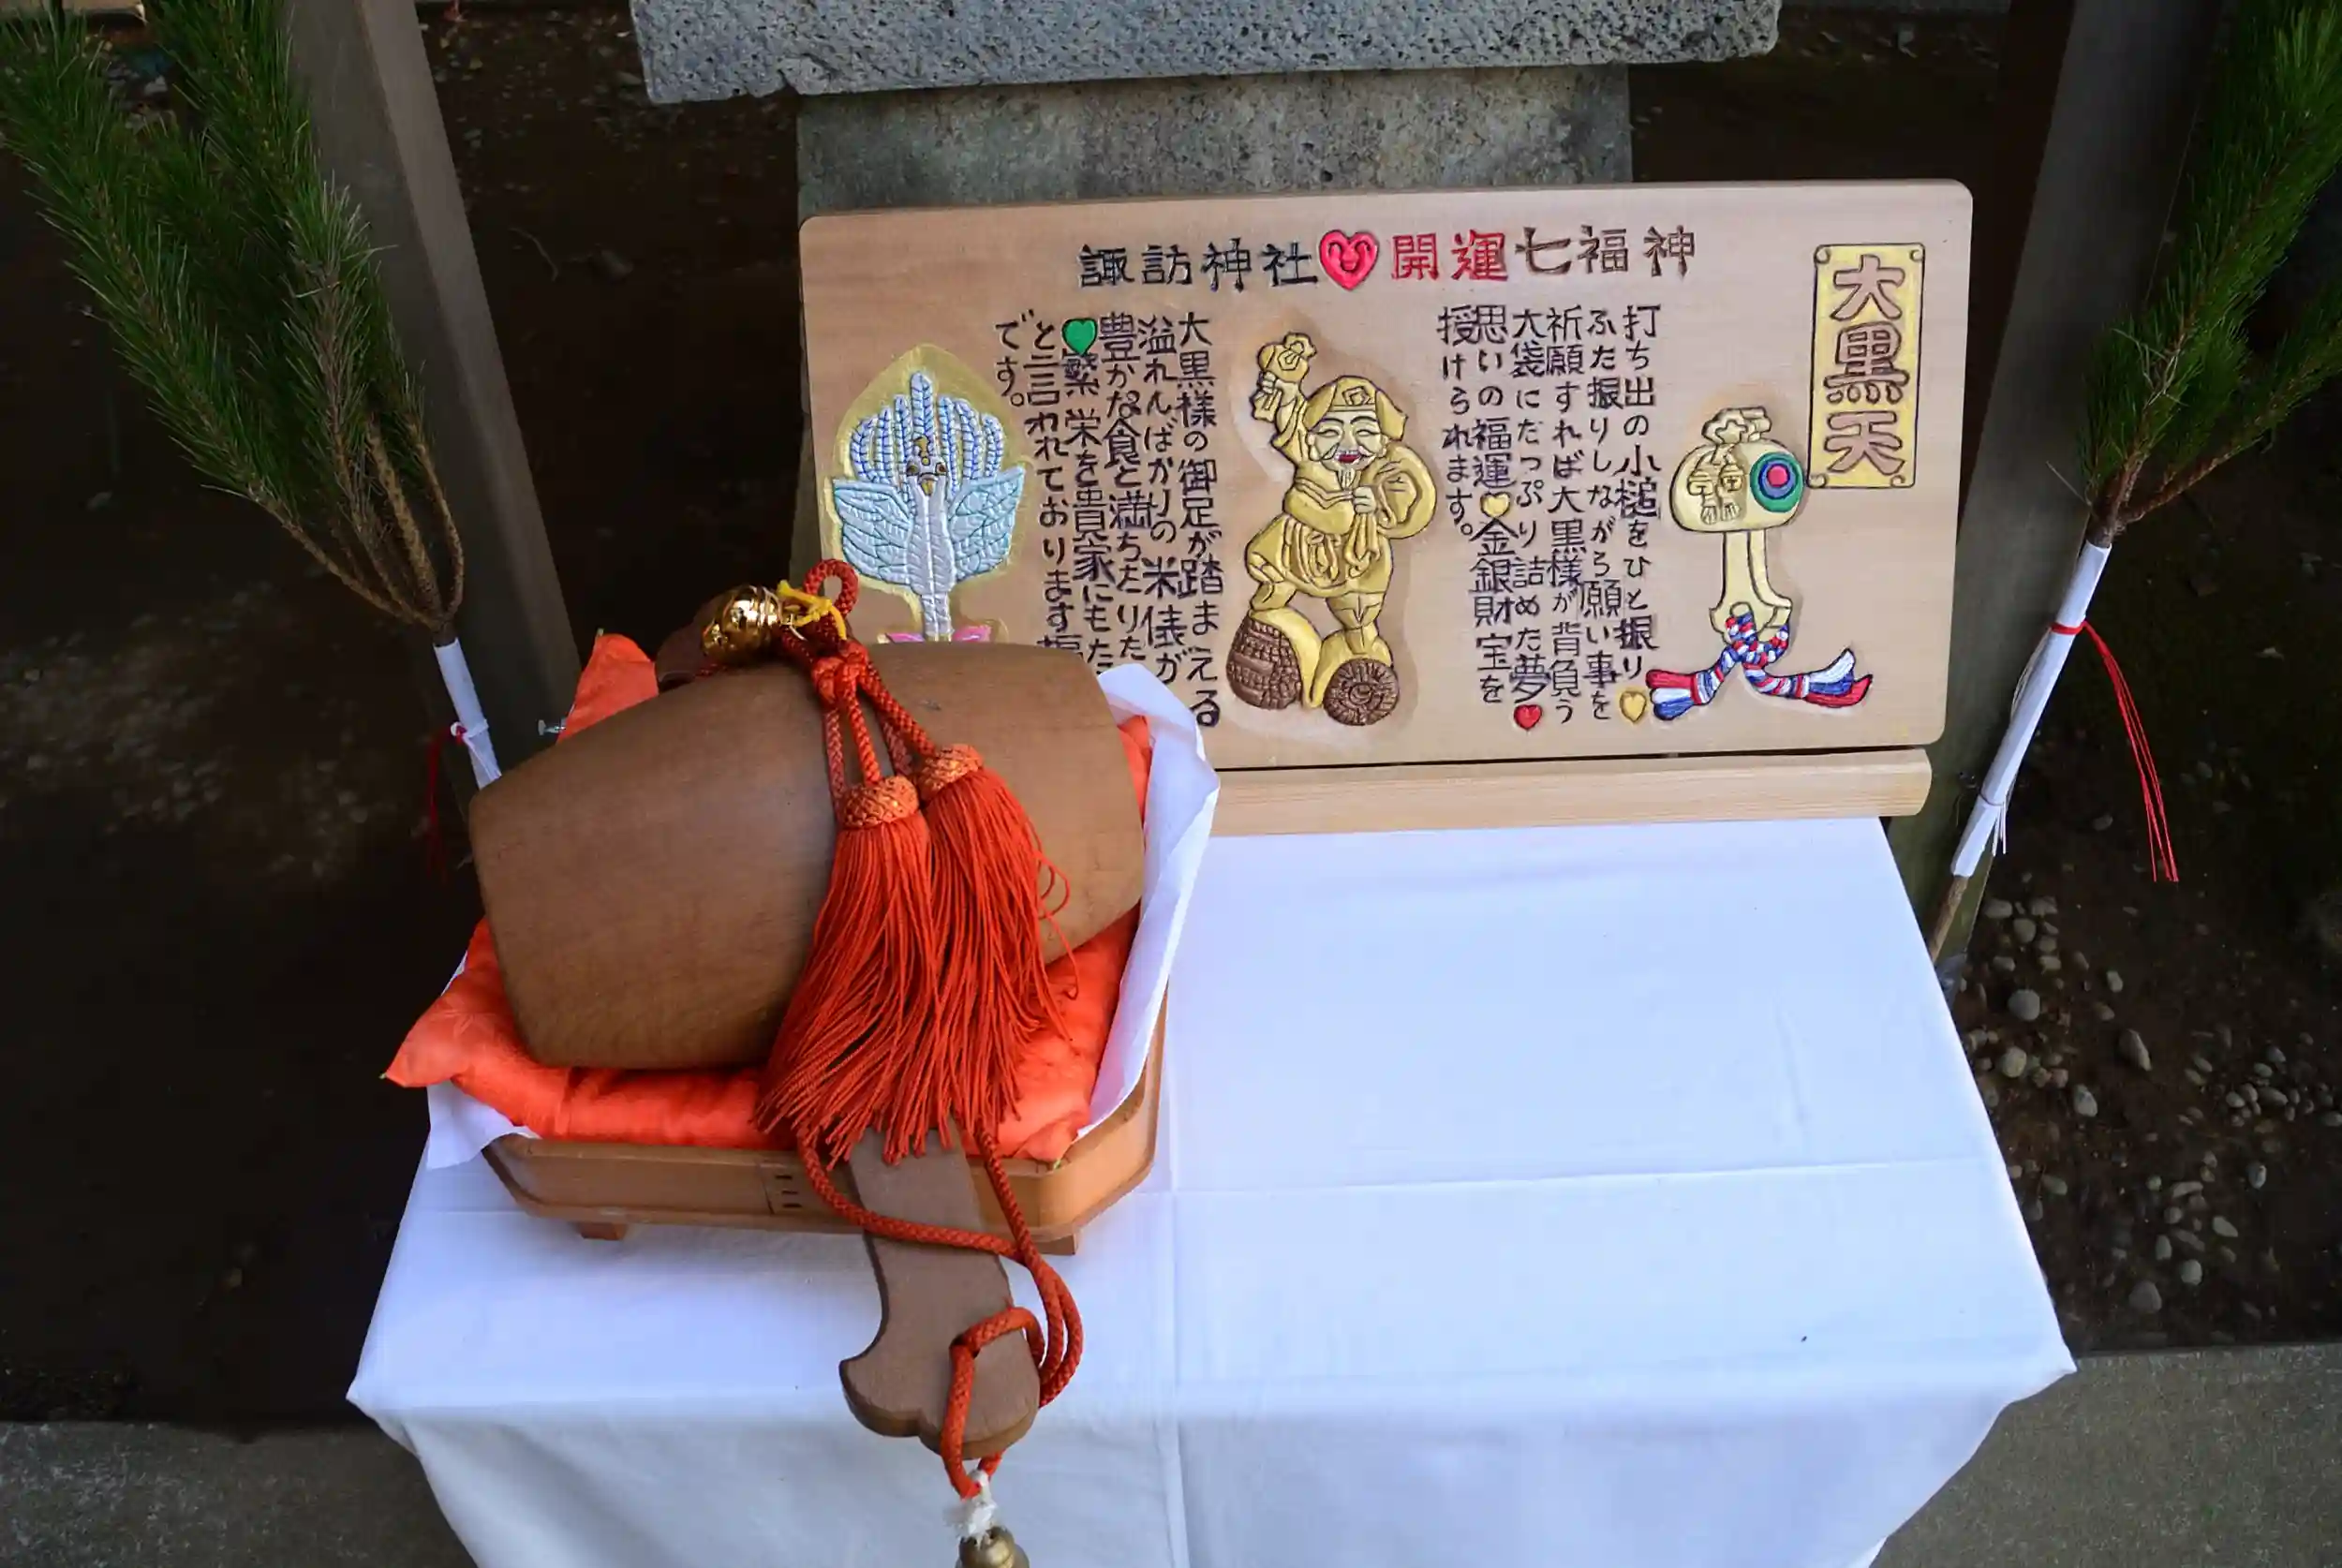 諏訪神社♥開運七福神
大黒天
打ち出の小槌をひと振り
ふた振りしながら願い事を
祈願すれば大黒様が背負う
大袋にだっぷり詰めた夢♥
思いの福運♥金銀財宝を
授けられます。
大黒様の御足が踏まえる
溢れんばかりの米俵が
豊かな食と満ちたりた
♥繁栄を貴家にもた
と言われております
です。